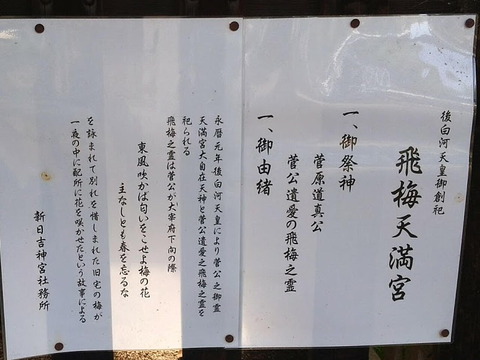 後白河天皇御創祀
飛梅天満宮
一、御祭神
菅原道真公
菅公遺愛の飛梅之霊
一、御由緒
永暦元年後白河天皇により菅公之御霊
天満宮大自在天神と菅公遺愛之飛梅之霊を
祀られる
飛梅之霊は菅公が大宰府下向の際
東風吹かば匂いをこせよ梅の花
主なしとも春を忘るな
を詠まれて別れを惜しまれた旧宅の梅が
一夜の中に配所に花を咲かせたという故事による
新日吉神宮社務所